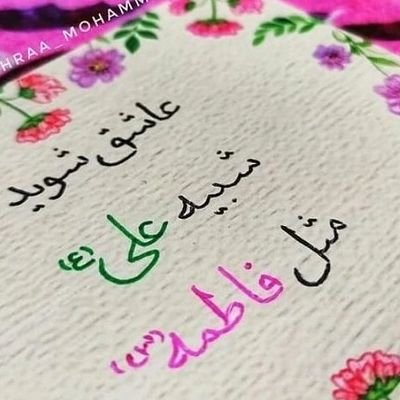 HRAA_MOHAMM
عاشق شوید
شبیه علی (ع)
مثل فاطمه (س)